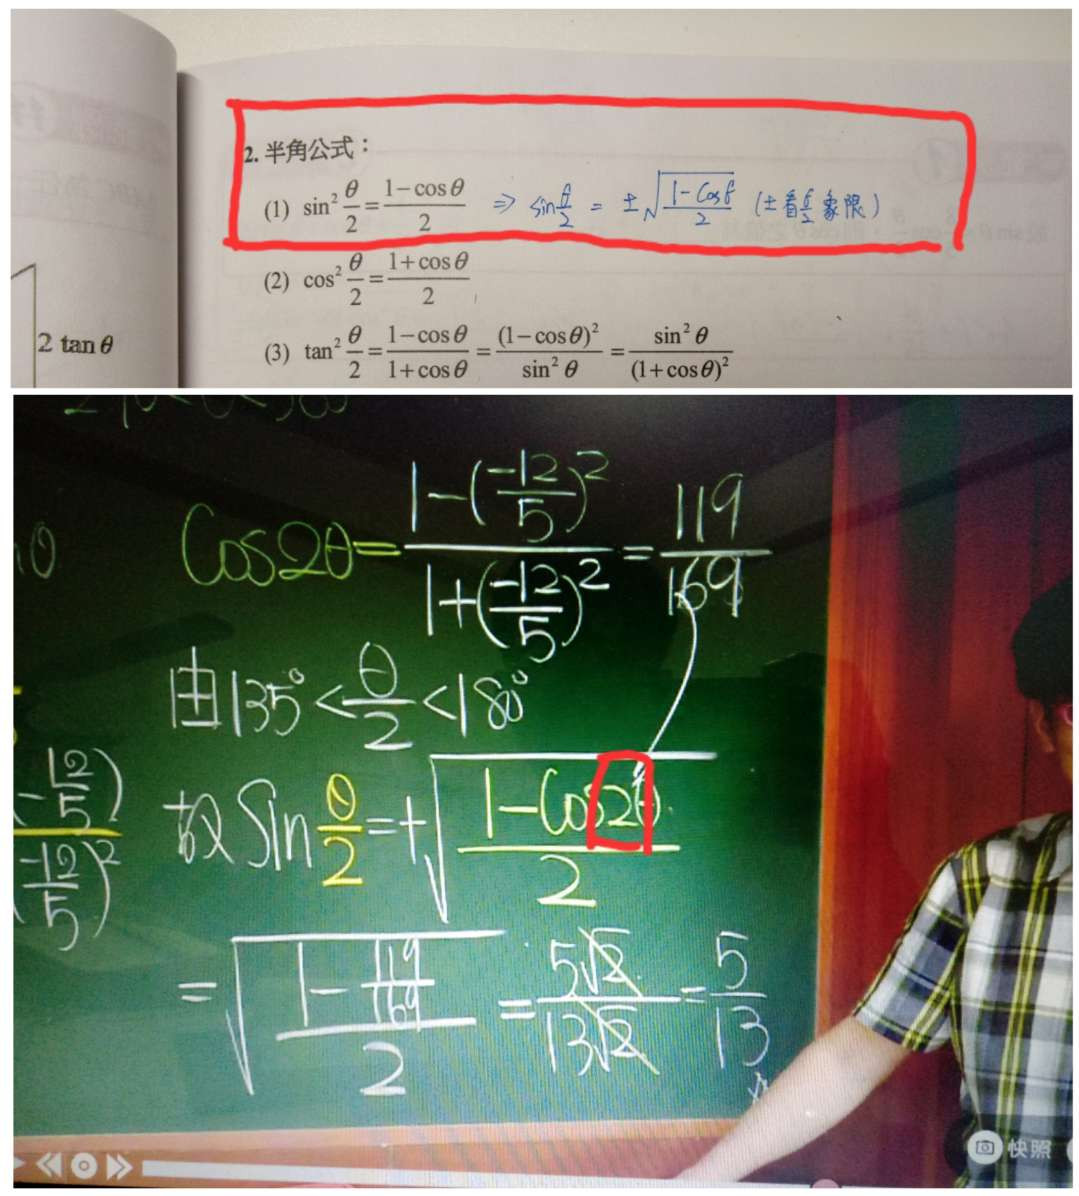 2. 半角公式：
(1) sin² θ/2 = (1-cosθ)/2 ⇒ sin θ/2 = ±√((1-Cosθ)/2) (±看 θ/2 象限)
(2) cos² θ/2 = (1+cosθ)/2
(3) tan² θ/2 = (1-cosθ)/(1+cosθ) = (1-cosθ)²/sin²θ = sin²θ/(1+cosθ)²
2 tanθ
Cos2θ = (1-(-12/5)²)/(1+(-12/5)²) = 119/169
由135°<θ/2<180°
故 Sin θ/2 = +√((1-Cos2θ)/2)
= √((1-119/169)/2) = 5√2/13√2 = 5/13
-12/5)
(-12/5)²
快照